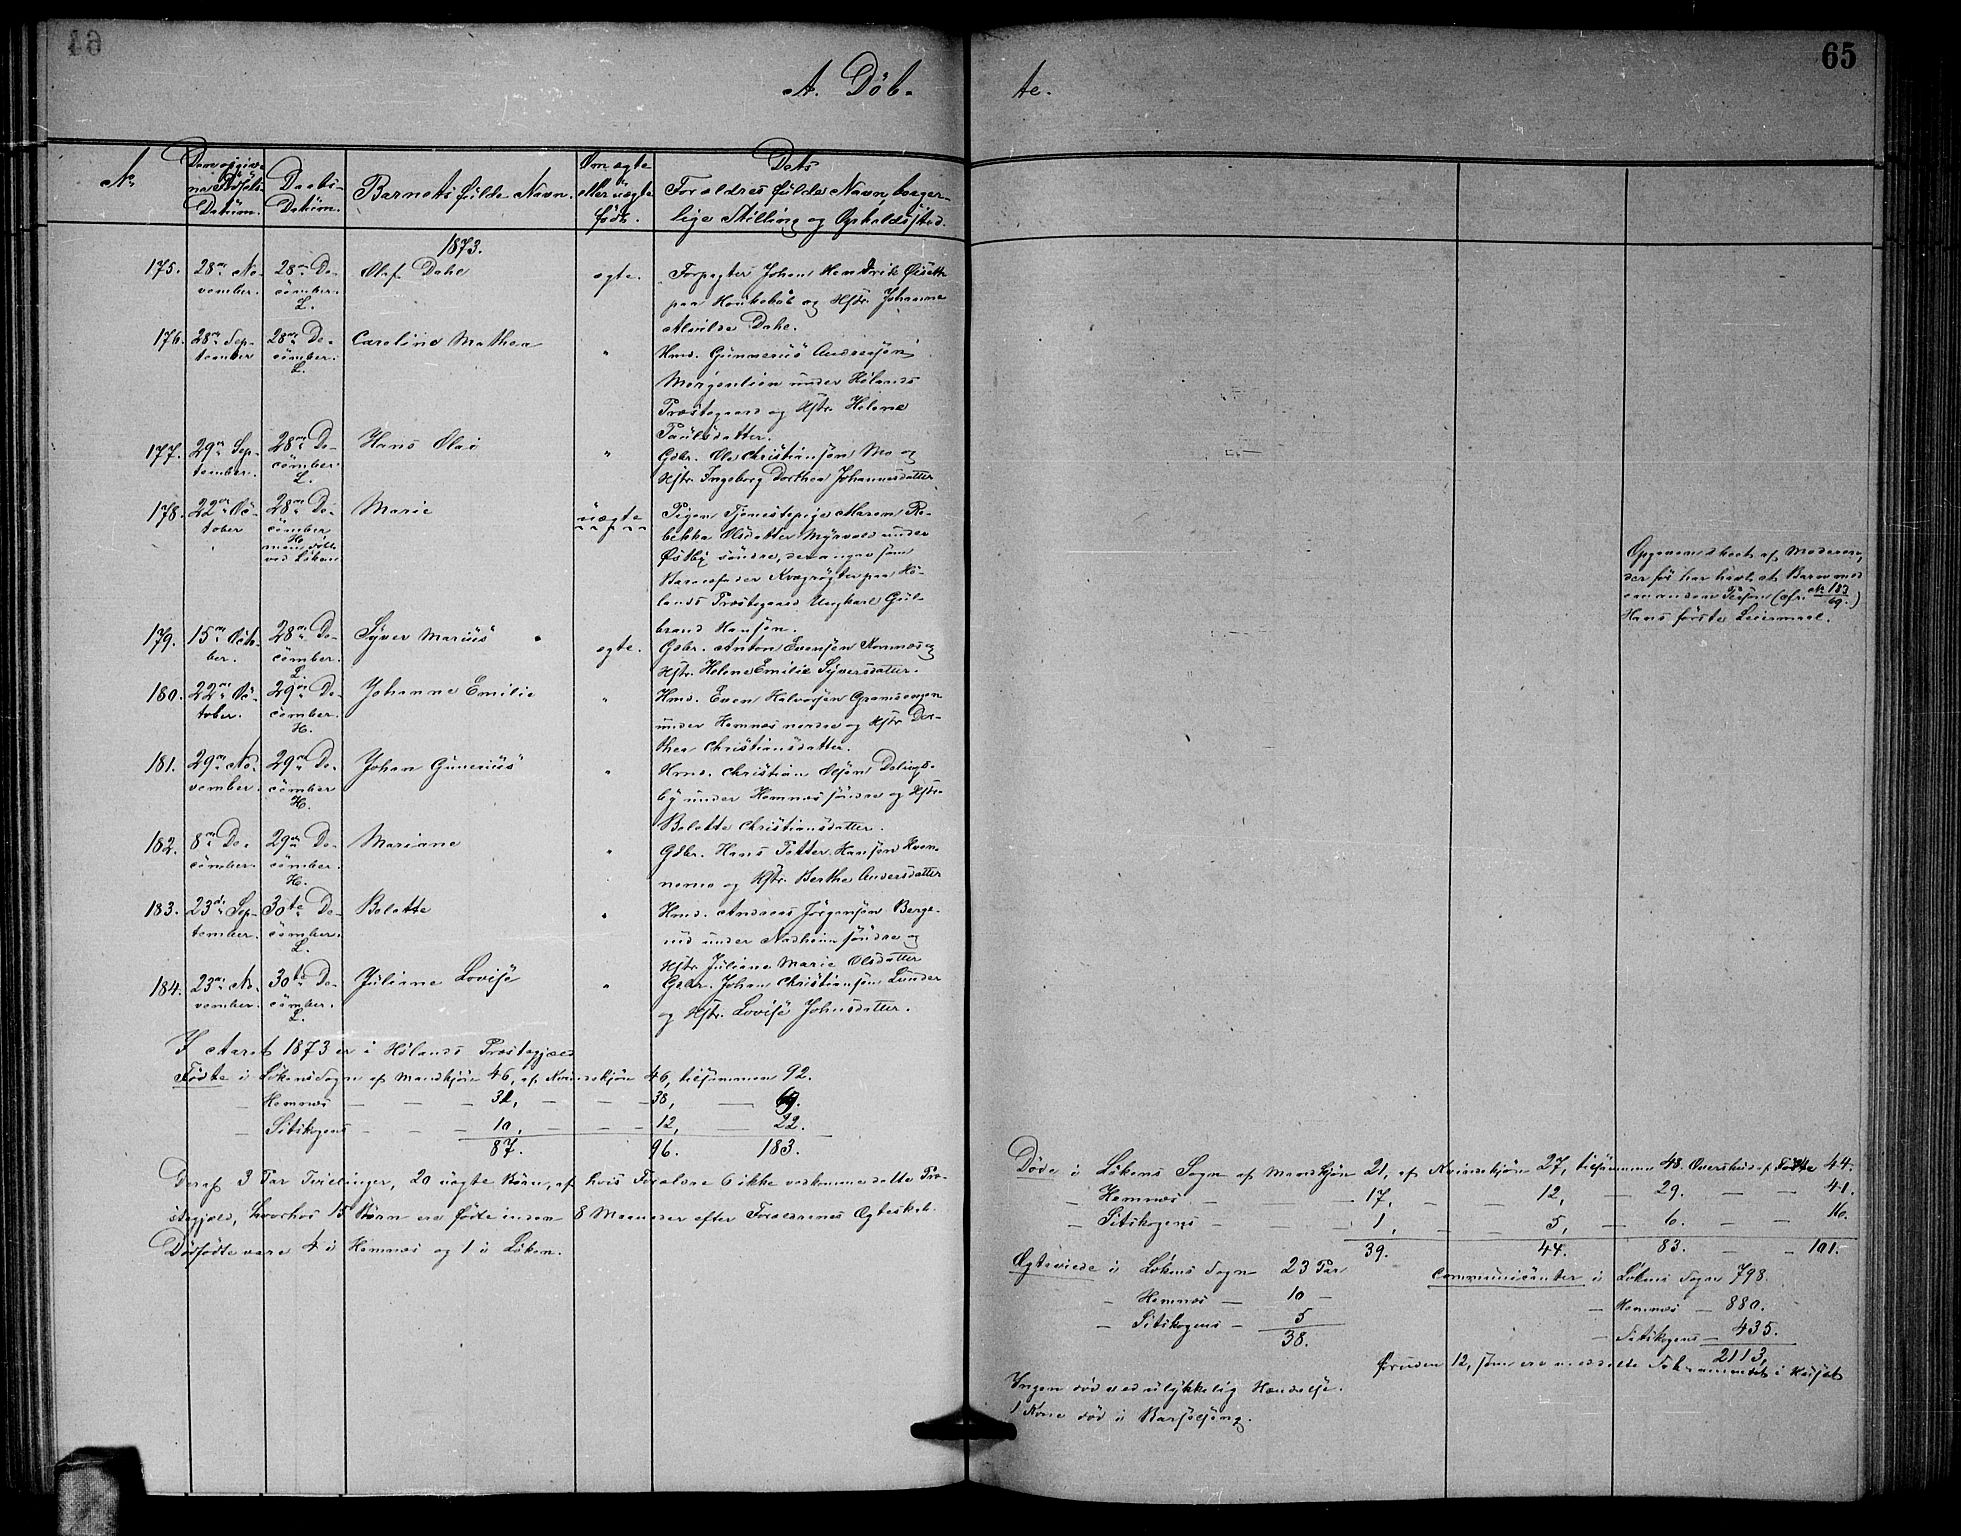 64
A. Döb-
te.
65
No
Den opgivne Födsels-Datum.
Daabs-Datum.
Barnets fulde Navn.
Om ægte eller uægte født.
Dets Forældres fulde Navn, borgerlige Stilling og Opholdssted.
1873.
175. 28de November. 28de December. L. Olaf Dahl ægte. Forpagter Johan Hendrik
paa og Hstr. Johanne
Alvilde Dahl.
176. 28de September 28de December. L. Caroline Mathea " Hmd. Gunnerius Andersøn
Morgenlien under Hølands
Præstegaard og Hstr. Helene
Paulsdatter.
177. 29de September. 28de December. L. Hans Olai " Gdbr. Ole Christiansøn Mo og
Hstr. Ingeborg Dorthea Johannesdatter
178. 22de October 28de December H. ved Löken Marie uægte Pigen Tjenestepige Maren Re-
bekka Olsdatter Myrvold under
Østby søndre, der angav som
Barnefader Kvægrøgter paa Hø-
lands Præstegaard Ungkarl Gul-
brand Hansøn.
Opgivende af Moderen,
der før har havt et Barn med
en anden Person (cfr. No 183/69.)
Hans første Leiermaal.
179. 15de October. 28de December. L. Syver Marius ægte. Gdbr. Anton Evensøn Komnæs og
Hstr. Helene Emilie Syversdatter.
180. 22de October. 29de December. H. Johanne Emilie " Hmd. Even Halvorsøn Gramsengen
under Hemnæs nordre og Hstr. Dor-
thea Christiansdatter.
181. 29de November. 29de December H. Johan Gunerius " Hmd. Christian Olsøn
by under Hemnæs søndre og Hstr.
Bolette Christiansdatter.
182. 8de December. 29de December. H. Mariane " Gdbr. Hans Petter Hansøn Kven-
nemo og Hstr. Berthe Andersdatter
183. 23de September. 30te December. L. Bolette " Hmd. Andreas Jørgensøn Berge-
nid under Nadheim søndre og
Hstr. Juliane Marie Olsdatter
184. 23de November. 30te December. L. Juliane Lovise " Gdbr. Johan Christiansøn Lunder
og Hstr. Lovise Johnsdatter.
I Aaret 1873 er i Hölands Præstegjæld
Fødte i Løkens Sogn af Mandkjøn 46, af Kvindekjøn 46, tilsammen 92.
— Hemnæs — — — 31, — — — 38, — 69.
— Sitskogens — — — 10, — — — 12, 22.
87. 96. 183.
Deraf 3 Par Tvillinger, 20 uægte Børn, af hvis Forældre 6 ikke vedkomme dette Præ-
stegjæld, hvorhos 15 Børn ere fødte inden 8 Maaneder efter Forældrenes Ægteskab.
Dødfødte vare 4 i Hemnæs og 1 i Løken.
Døde i Løkens Sogn af Mandkjøn 21, af Kvindekjøn 27, tilsammen 48. Overskud af Fødte 44.
— Hemnæs — — — 17, — — 12, — 29. — — 41.
— Sitskogens — — — 1, — — 5, — 6. — — 16.
39. 44. 83. — — 101.
Ægteviede i Løkens Sogn 23 Par
— Hemnæs — 10 —
— Sitskogens — 5
38.
Communicanter i Løkens Sogn 798.
— Hemnæs — 880.
— Sitskogens — 435.
2113,
foruden 12, som ere meddelte Sakramentet i Huset
Ingen død ved ulykkelig Hændelse.
1 Kone død i Barselseng.